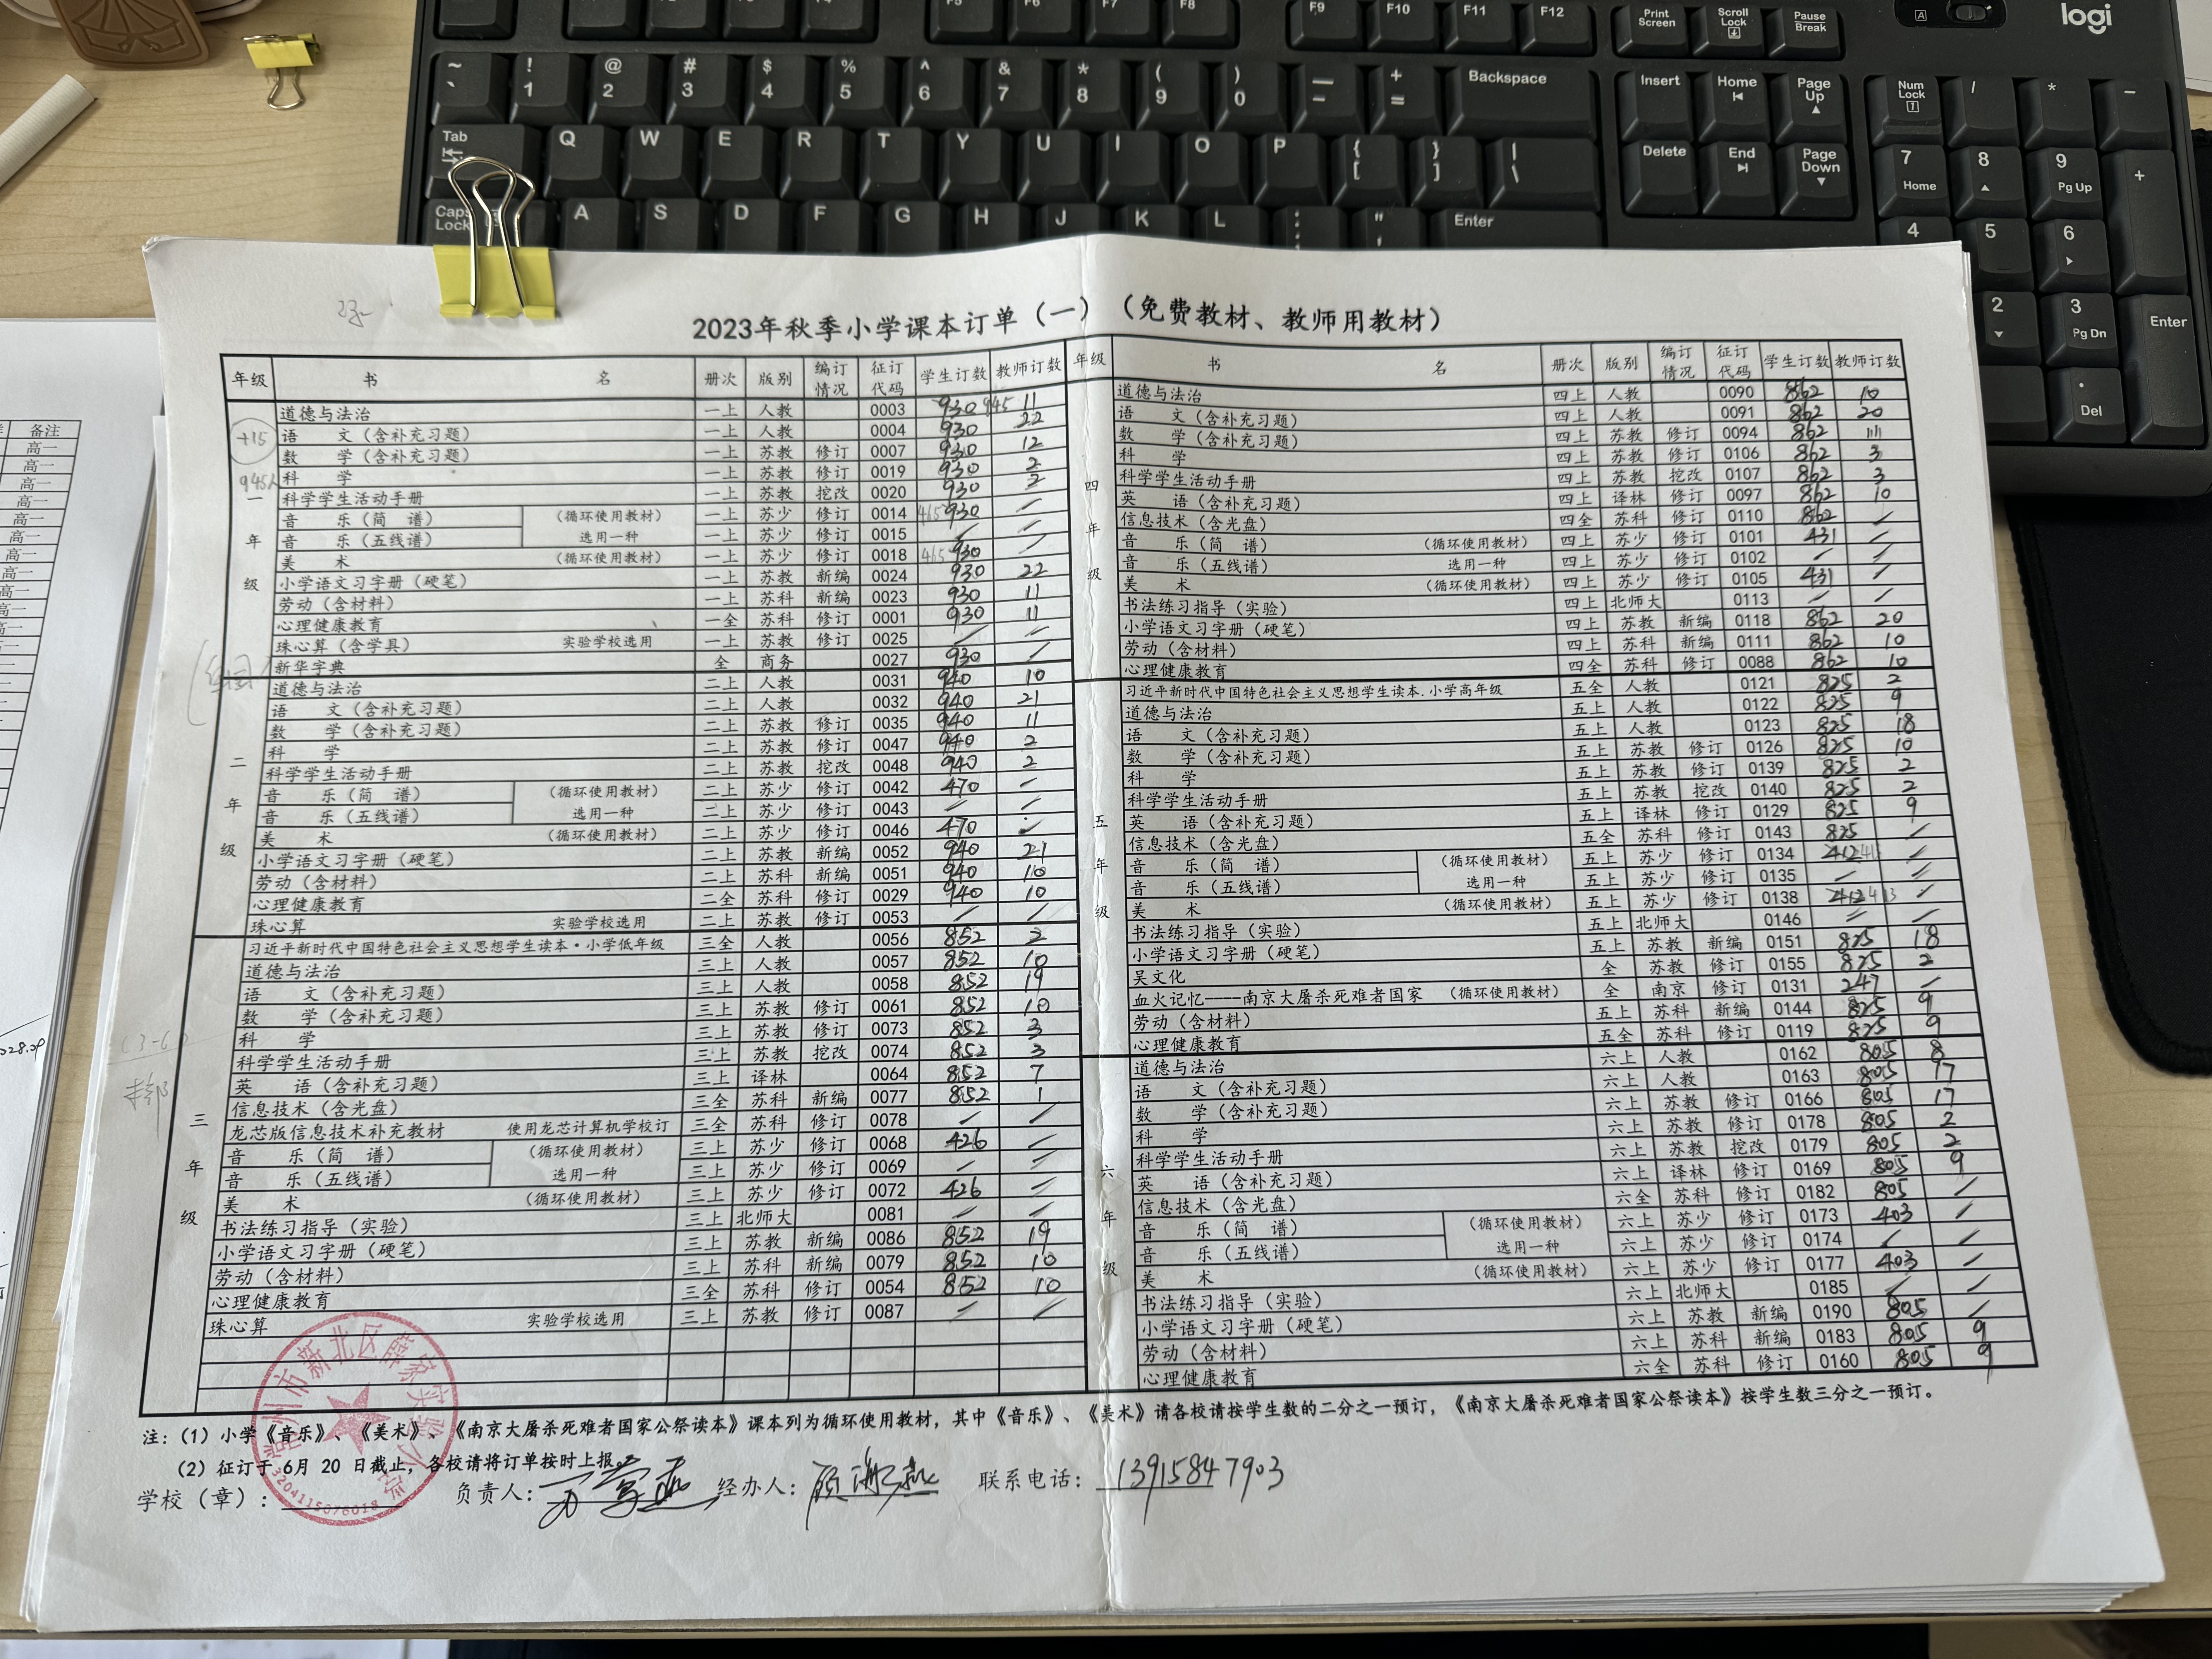 2023年秋季小学课本订单（一）（免费教材、教师用教材）
年级 书 名 册次 版别 编订情况 征订代码 学生订数 教师订数
+15
945
一年级
道德与法治 一上 人教 0003 930 945 11
语 文（含补充习题） 一上 人教 0004 930 22
数 学（含补充习题） 一上 苏教 修订 0007 930 12
科 学 一上 苏教 修订 0019 930 2
科学学生活动手册 一上 苏教 挖改 0020 930 2
音 乐（简 谱） （循环使用教材） 一上 苏少 修订 0014 465 930 /
音 乐（五线谱） 选用一种 一上 苏少 修订 0015 / /
美 术 （循环使用教材） 一上 苏少 修订 0018 465 930 /
小学语文习字册（硬笔） 一上 苏教 新编 0024 930 22
劳动（含材料） 一上 苏科 新编 0023 930 11
心理健康教育 一全 苏科 修订 0001 930 11
珠心算（含学具） 实验学校选用 一上 苏教 修订 0025 / /
新华字典 全 商务 0027 930 /
二年级
道德与法治 二上 人教 0031 940 10
语 文（含补充习题） 二上 人教 0032 940 21
数 学（含补充习题） 二上 苏教 修订 0035 940 11
科 学 二上 苏教 修订 0047 940 2
科学学生活动手册 二上 苏教 挖改 0048 940 2
音 乐（简 谱） （循环使用教材） 二上 苏少 修订 0042 470 /
音 乐（五线谱） 选用一种 二上 苏少 修订 0043 / /
美 术 （循环使用教材） 二上 苏少 修订 0046 470 /
小学语文习字册（硬笔） 二上 苏教 新编 0052 940 21
劳动（含材料） 二上 苏科 新编 0051 940 10
心理健康教育 二全 苏科 修订 0029 940 10
珠心算 实验学校选用 二上 苏教 修订 0053 / /
三年级
习近平新时代中国特色社会主义思想学生读本·小学低年级 三全 人教 0056 852 2
道德与法治 三上 人教 0057 852 10
语 文（含补充习题） 三上 人教 0058 852 19
数 学（含补充习题） 三上 苏教 修订 0061 852 10
科 学 三上 苏教 修订 0073 852 3
科学学生活动手册 三上 苏教 挖改 0074 852 3
英 语（含补充习题） 三上 译林 0064 852 7
信息技术（含光盘） 三全 苏科 新编 0077 852 1
龙芯版信息技术补充教材 使用龙芯计算机学校订 三全 苏科 修订 0078 / /
音 乐（简 谱） （循环使用教材） 三上 苏少 修订 0068 426 /
音 乐（五线谱） 选用一种 三上 苏少 修订 0069 / /
美 术 （循环使用教材） 三上 苏少 修订 0072 426 /
书法练习指导（实验） 三上 北师大 0081 / /
小学语文习字册（硬笔） 三上 苏教 新编 0086 852 19
劳动（含材料） 三上 苏科 新编 0079 852 10
心理健康教育 三全 苏科 修订 0054 852 10
珠心算 实验学校选用 三上 苏教 修订 0087 / /
年级 书 名 册次 版别 编订情况 征订代码 学生订数 教师订数
四年级
道德与法治 四上 人教 0090 862 10
语 文（含补充习题） 四上 人教 0091 862 20
数 学（含补充习题） 四上 苏教 修订 0094 862
科 学 四上 苏教 修订 0106 862 3
科学学生活动手册 四上 苏教 挖改 0107 862 3
英 语（含补充习题） 四上 译林 修订 0097 862 10
信息技术（含光盘） 四全 苏科 修订 0110 862 /
音 乐（简 谱） （循环使用教材） 四上 苏少 修订 0101 431 /
音 乐（五线谱） 选用一种 四上 苏少 修订 0102 / /
美 术 （循环使用教材） 四上 苏少 修订 0105 431 /
书法练习指导（实验） 四上 北师大 0113 / /
小学语文习字册（硬笔） 四上 苏教 新编 0118 862 20
劳动（含材料） 四上 苏科 新编 0111 862 10
心理健康教育 四全 苏科 修订 0088 862 10
五年级
习近平新时代中国特色社会主义思想学生读本.小学高年级 五全 人教 0121 825 2
道德与法治 五上 人教 0122 825 9
语 文（含补充习题） 五上 人教 0123 825 18
数 学（含补充习题） 五上 苏教 修订 0126 825 10
科 学 五上 苏教 修订 0139 825 2
科学学生活动手册 五上 苏教 挖改 0140 825 2
英 语（含补充习题） 五上 译林 修订 0129 825 9
信息技术（含光盘） 五全 苏科 修订 0143 825 /
音 乐（简 谱） （循环使用教材） 五上 苏少 修订 0134 412 /
音 乐（五线谱） 选用一种 五上 苏少 修订 0135 / /
美 术 （循环使用教材） 五上 苏少 修订 0138 412 413 /
书法练习指导（实验） 五上 北师大 0146 / /
小学语文习字册（硬笔） 五上 苏教 新编 0151 825 18
吴文化 全 苏教 修订 0155 825 2
血火记忆----南京大屠杀死难者国家 （循环使用教材） 全 南京 修订 0131 247 /
劳动（含材料） 五上 苏科 新编 0144 825 9
心理健康教育 五全 苏科 修订 0119 825 9
六年级
道德与法治 六上 人教 0162 805 8
语 文（含补充习题） 六上 人教 0163 805 17
数 学（含补充习题） 六上 苏教 修订 0166 805 17
科 学 六上 苏教 修订 0178 805 2
科学学生活动手册 六上 苏教 挖改 0179 805 2
英 语（含补充习题） 六上 译林 修订 0169 805 9
信息技术（含光盘） 六全 苏科 修订 0182 805 /
音 乐（简 谱） （循环使用教材） 六上 苏少 修订 0173 403 /
音 乐（五线谱） 选用一种 六上 苏少 修订 0174 / /
美 术 （循环使用教材） 六上 苏少 修订 0177 403 /
书法练习指导（实验） 六上 北师大 0185 / /
小学语文习字册（硬笔） 六上 苏教 新编 0190 805 /
劳动（含材料） 六上 苏科 新编 0183 805 9
心理健康教育 六全 苏科 修订 0160 805 9
注：（1）小学《音乐》、《美术》、《南京大屠杀死难者国家公祭读本》课本列为循环使用教材，其中《音乐》、《美术》请各校请按学生数的二分之一预订，《南京大屠杀死难者国家公祭读本》按学生数三分之一预订。
（2）征订于 6月 20 日截止，各校请将订单按时上报。
学校（章）： 负责人： 经办人： 联系电话：13915847903
常州市新北区薛家实验小学
3204115076018
备注
高一
高一
高一
高一
高一
高一
高一
高一
高一
高一
高一
logi
F9 F10 F11 F12
Print Screen
Scroll Lock
Pause Break
~ ` ! 1 @ 2 # 3 $ 4 % 5 ^ 6 & 7 * 8 ( 9 ) 0 — - + = Backspace
Insert Home Page Up Num Lock / * -
Tab Q W E R T Y U I O P { [ } ] | \
Delete End Page Down 7 Home 8 9 Pg Up +
Caps Lock A S D F G H J K L : ; " ' Enter
4 5 6
2 3 Pg Dn Enter
. Del